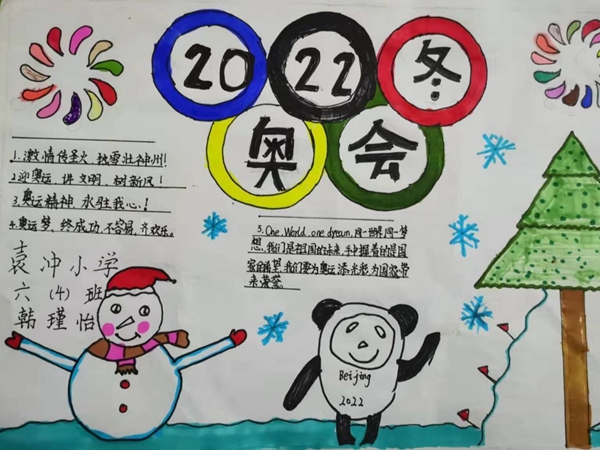 2022冬
奥会
1.激情传圣火,执雪壮神州!
2.迎奥运 讲文明,树新风!
3.奥运精神,永驻我心!
4.奥运梦,终成功,不容易,齐欢乐。
袁冲小学
六(4)班
韩瑾怡
5.One World one dream,同一世界,同一梦
想,我们是祖国的未来,手中握着的是国
家的希望,我们要为奥运添光彩,为国家带
来荣誉。
Beijing
2022